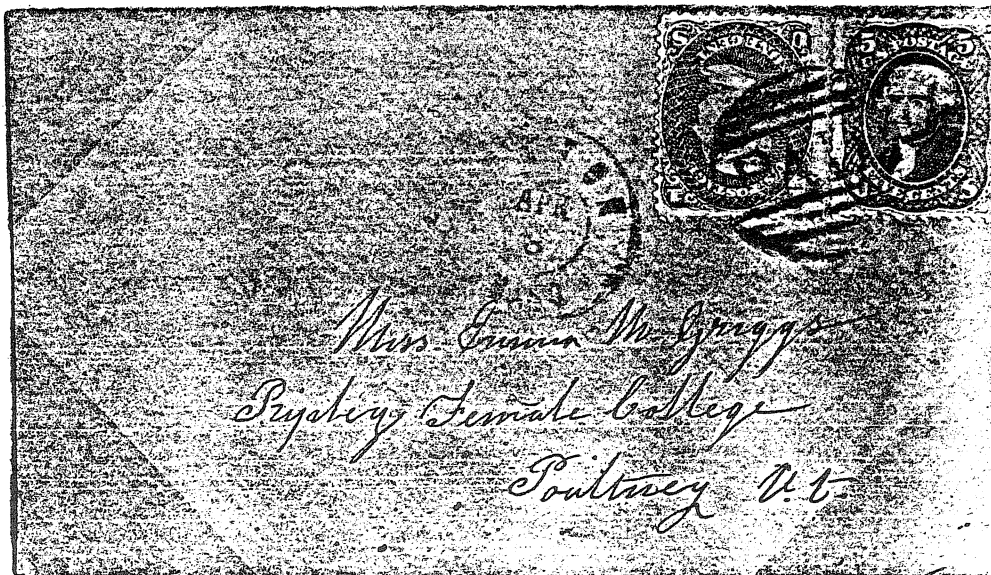 5 POSTA 5
APR
Miss Emma M. Griggs
Ripley Female College
Poultney Vt